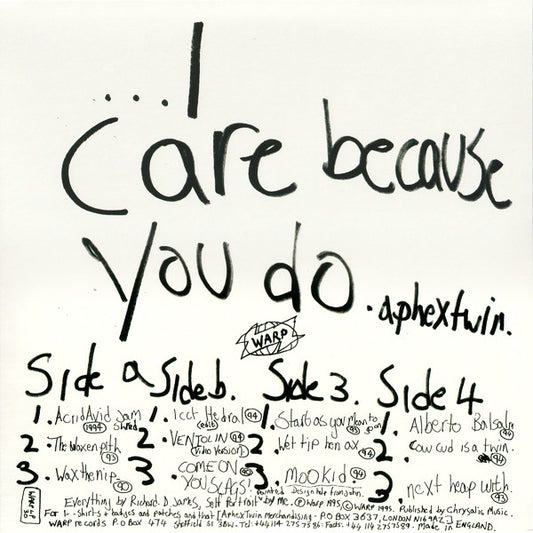 ...I
Care because
you do.
. aphextwin.
WARP
Side a
1. Acrid Avid Jam
1994 Shred
2. The waxen pith
93
3. Wax the nip
90
Side b.
1. Icct Hedral 94
(edit)
2. VENTOLIN 94
(video Version)
3. COME ON
YOU SLAGS!
Side 3.
1. Start as you Mean to
go on
93
2. Wet tip hen ax 94
3. MOOKid 94
Side 4
1. Alberto Balsalm
94
2. Cow cud is a twin.
94
3. next heap with.
93
Everything by Richard. D. James, Self Portrait by me. Painted Design help from John. ℗ Warp 1995, © WARP 1995. Published by Chrysalis Music.
WARP LP 30
For T-Shirts + badges and patches and that [Aphex Twin Merchandising - P.O BOX 3637, LONDON N16 9AZ]
WARP records P.O Box 474 Sheffield S1 Tel: Made in ENGLAND.